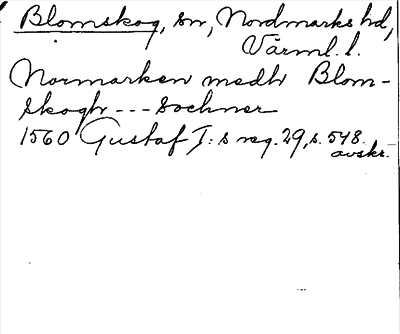 Blomskog, sn, Nordmarks hd,
Värml. l.
Normarken medh Blom-
skogh --- Sochner
1560 Gustaf I:s reg. 29, s. 548.
avskr.